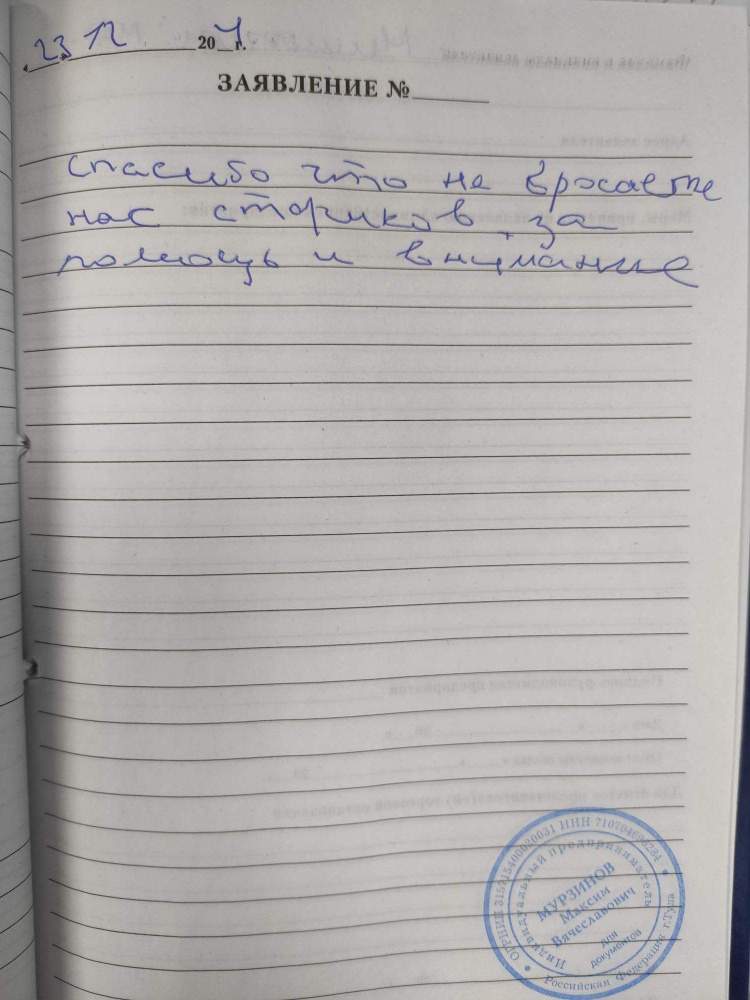 23 12 20 г.
ЗАЯВЛЕНИЕ №
спасибо что не бросаете
нас стариков за
помощь и внимание
Индивидуальный предприниматель
МУРЗИНОВ
Максим
Вячеславович
для
документов
Российская Федерация г.Тула